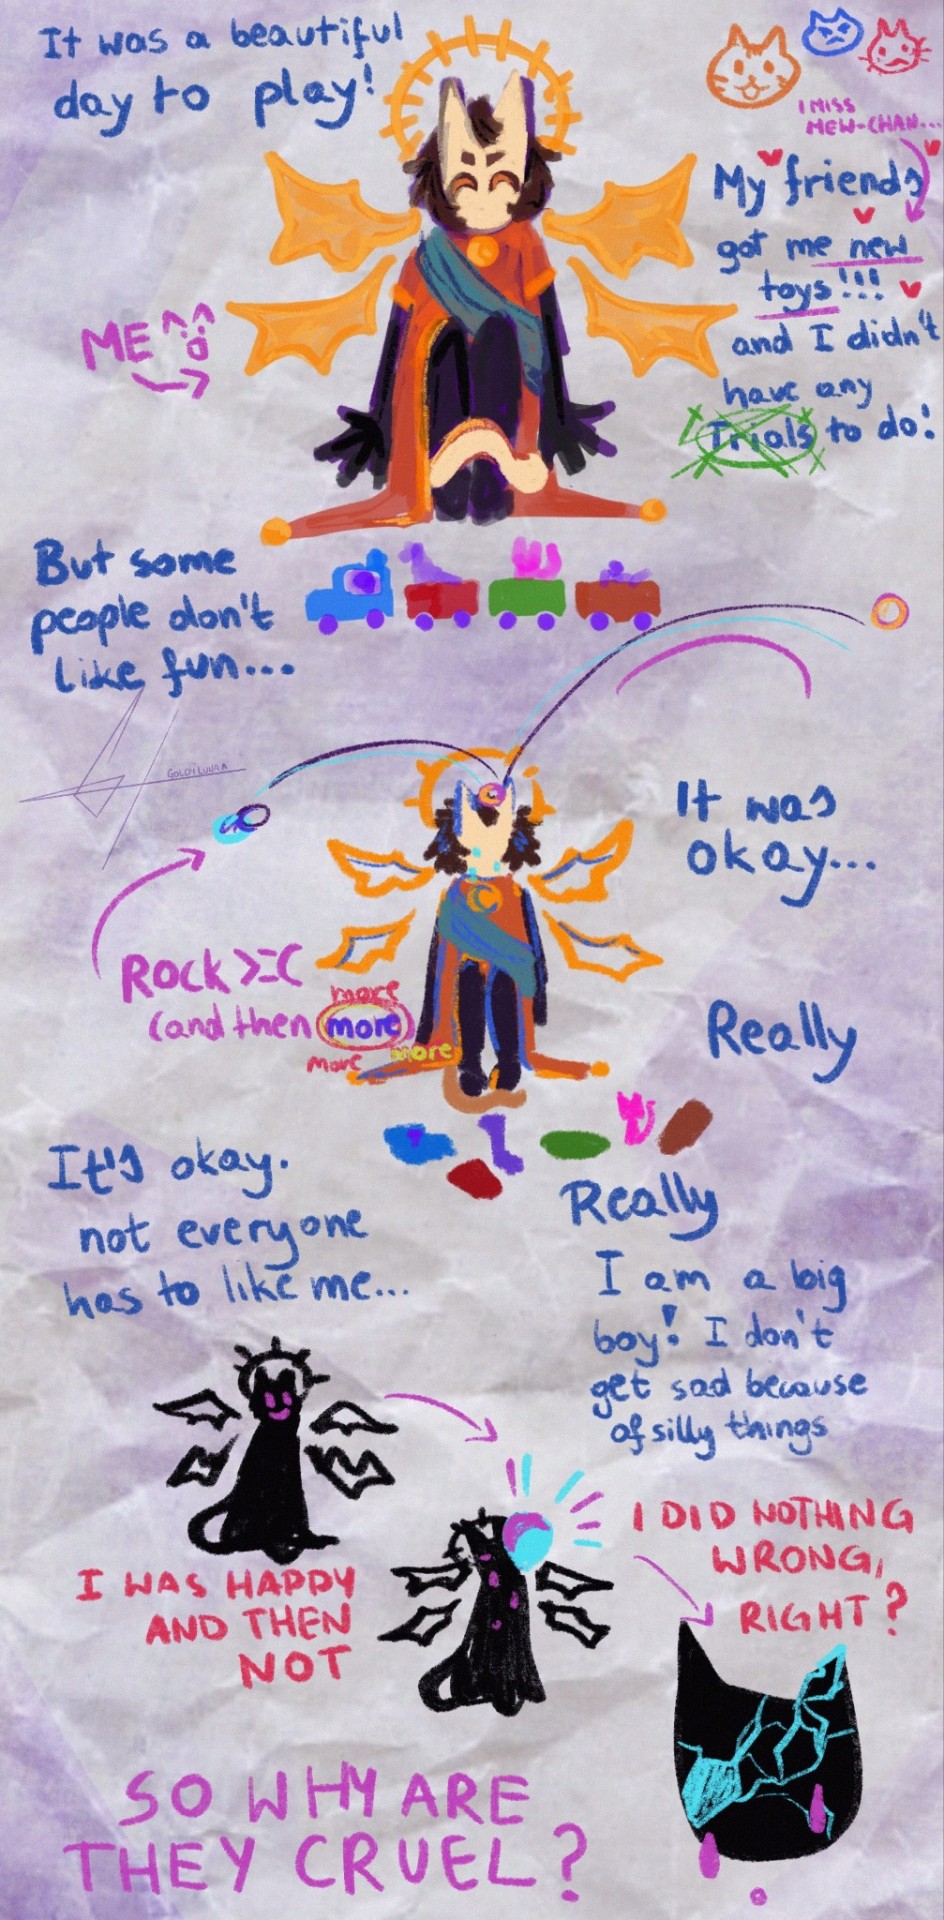 It was a beautiful
day to play!
I MISS
MEW-CHAN...
My friends
got me new
toys!!!
and I didn't
have any
Trials to do!
ME ^^
But some
people don't
like fun...
GOLDILUNAA
It was
okay...
ROCK >:C
more
(and then more)
more more
Really
It's okay.
not everyone
has to like me...
Really
I am a big
boy! I don't
get sad because
of silly things
I WAS HAPPY
AND THEN
NOT
I DID NOTHING
WRONG,
RIGHT?
SO WHY ARE
THEY CRUEL?